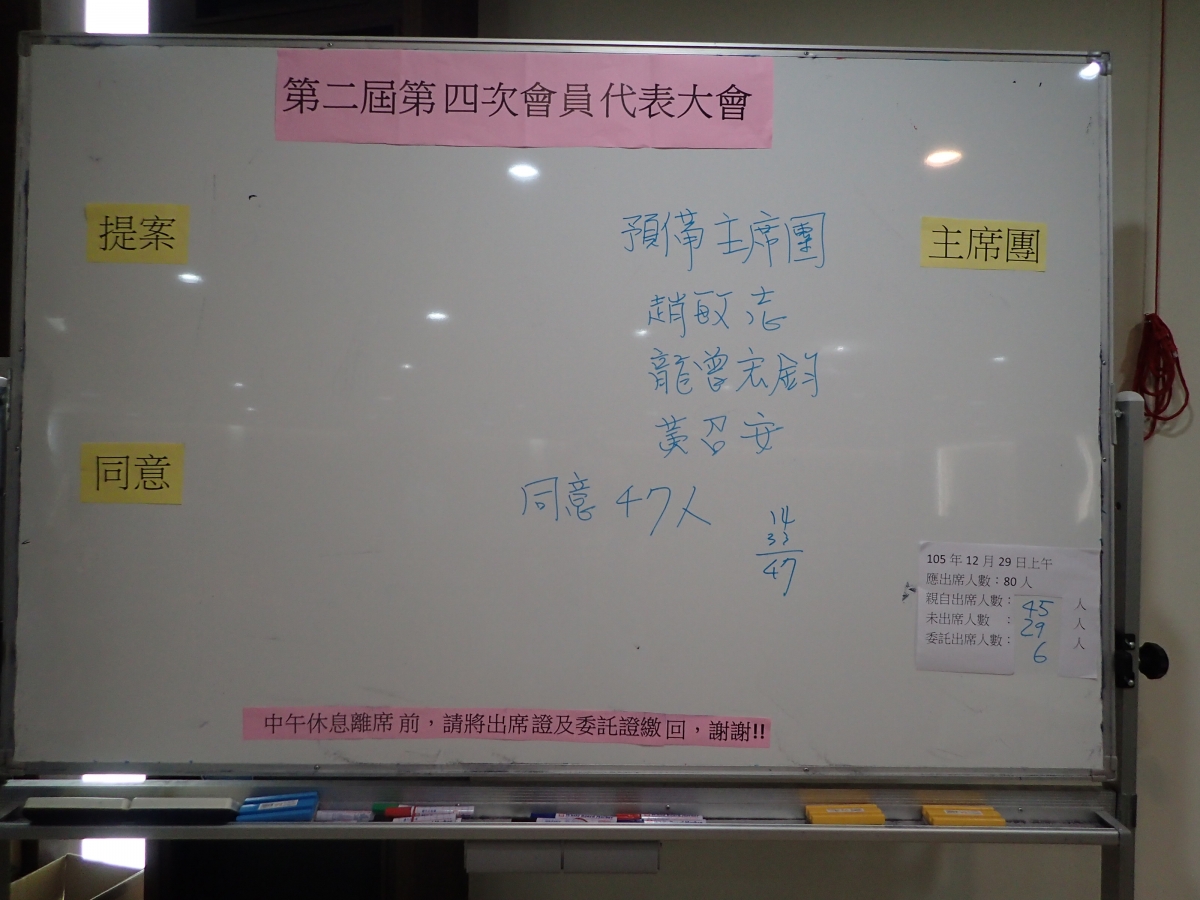 第二屆第四次會員代表大會
提案
預備主席團
主席團
趙敏志
龍曾宏鈞
黃召安
同意
同意 47人
14
33
47
105 年 12 月 29 日上午
應出席人數：80 人
親自出席人數： 45 人
未出席人數 ： 29 人
委託出席人數： 6 人
中午休息離席前，請將出席證及委託證繳回，謝謝!!